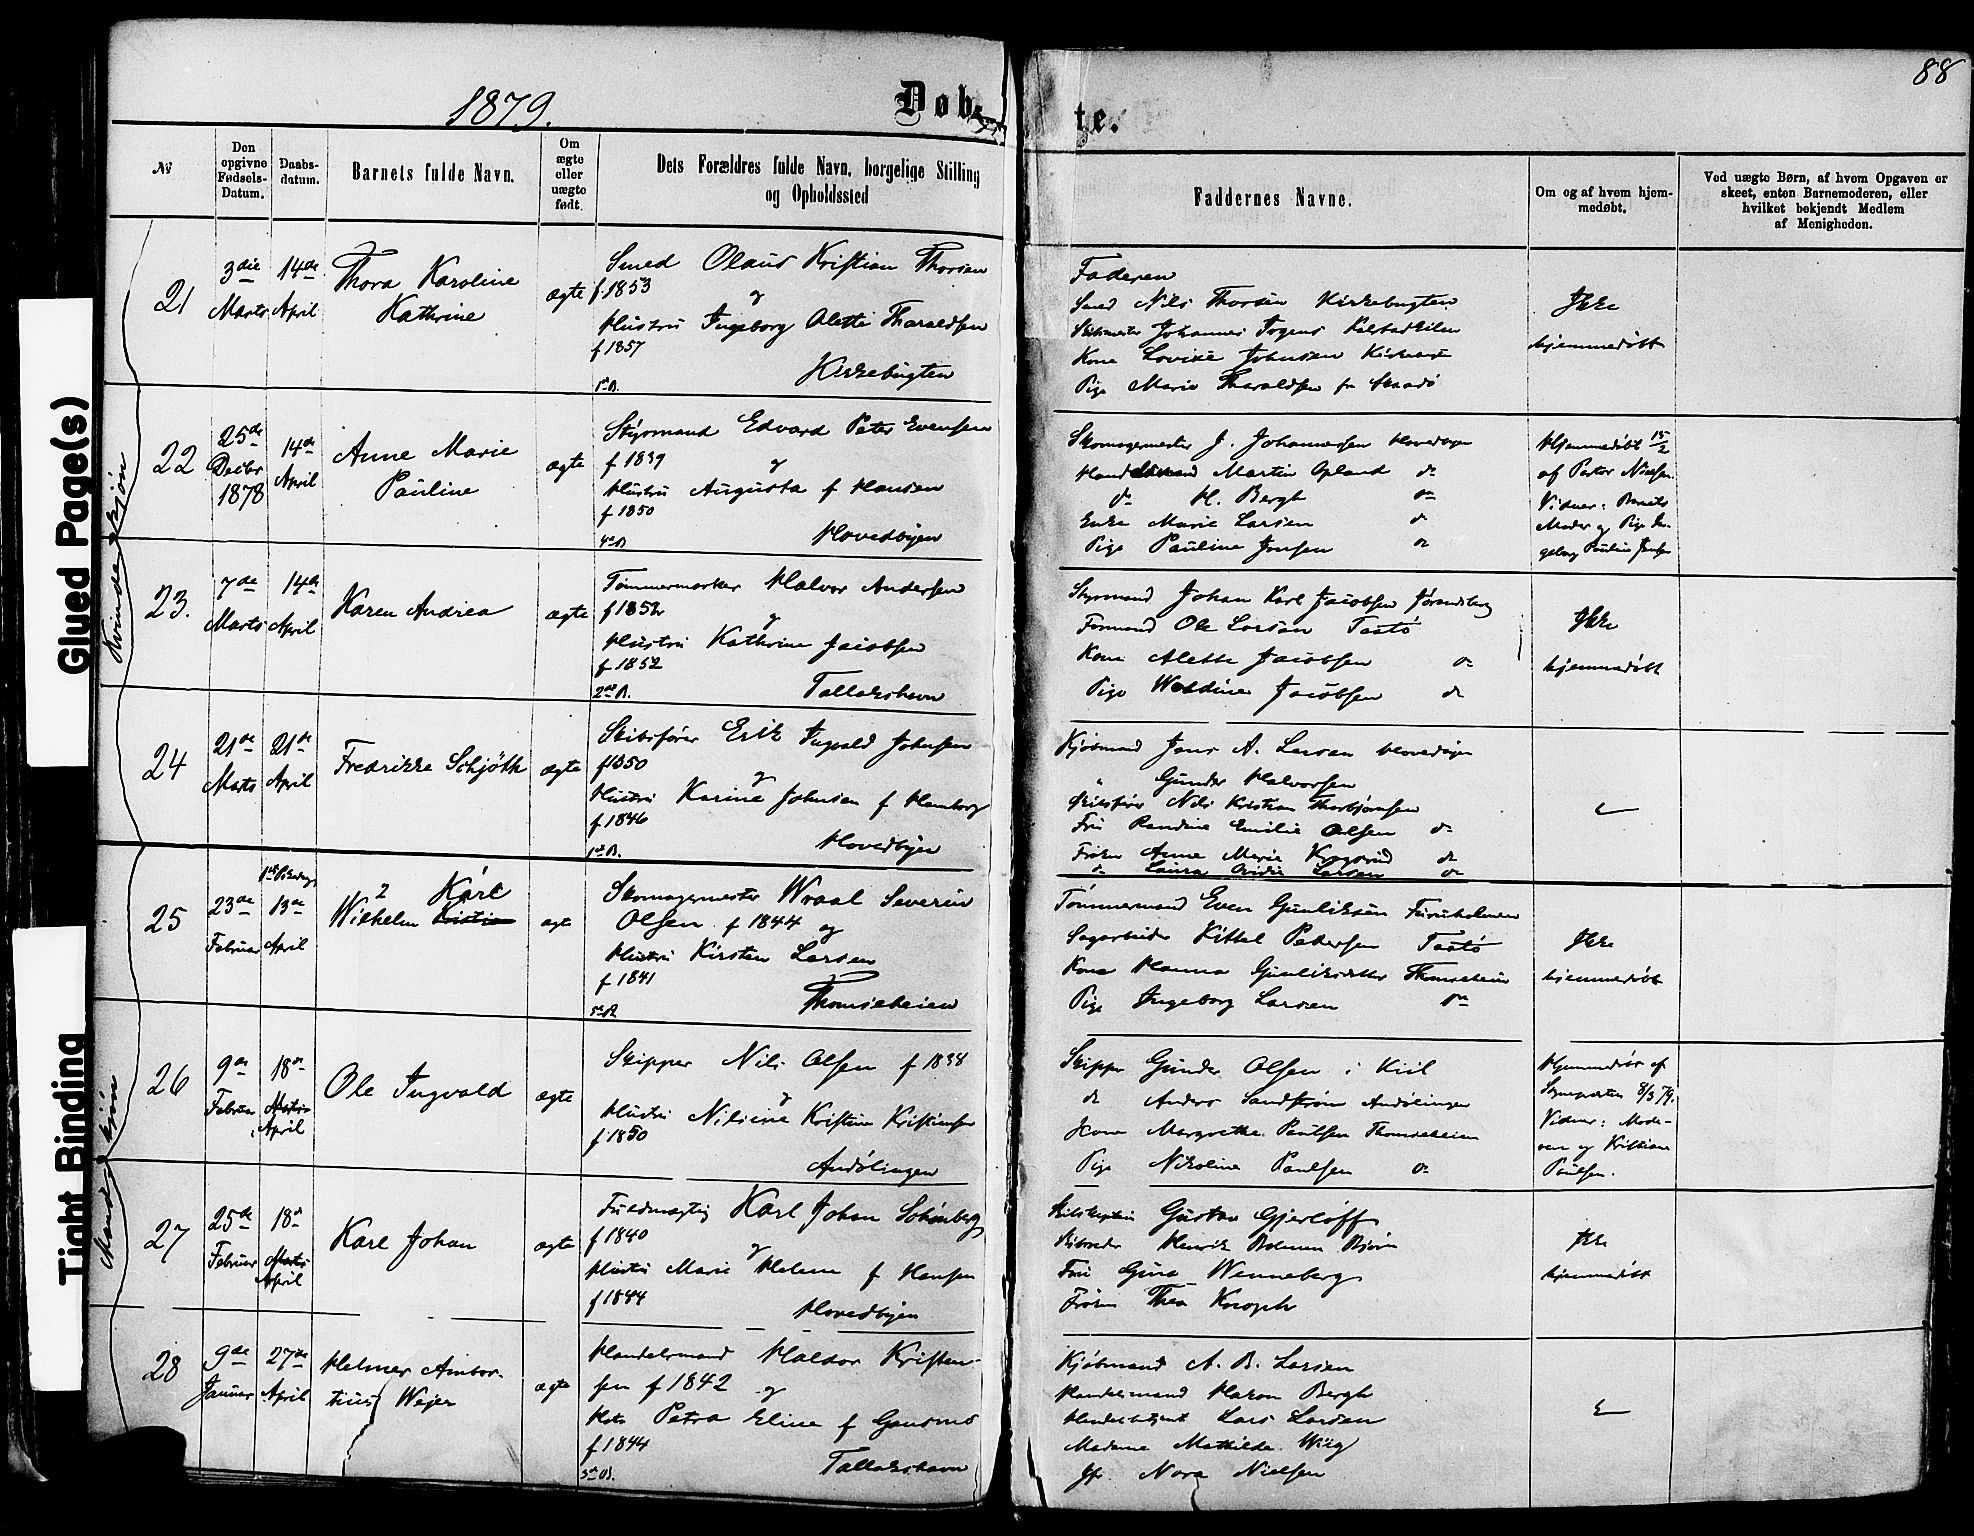 88
1879.
Døbte.
No
Den opgivne Fødsels-Datum.
Daabs-datum.
Barnets fulde Navn.
Om ægte eller uægte født.
Dets Forældres fulde Navn, borgelige Stilling og Opholdssted
Faddernes Navne.
Om og af hvem hjem-medøbt.
Ved uægte Børn, af hvem Opgaven er skeet, enten Barnemoderen, eller hvilket bekjendt Medlem af Menigheden.
Glued Page(s)
Tight Binding
Kvindekjøn
21
3die Marts
14de April
Thora Karoline
Kathrine
ægte
Smed Olaus Kristian Thorsen
f 1853 og
Hustru Ingeborg Alette Tharaldsen
f 1857
1st B. Kirkebugten
Faderen
Smed Nils Thorsen Kirkebugten
Johannes
Kone Lovise Johnsen
Pige Marie Tharaldsen fr
Ikke
hjemmedøbt
22
25de Decbr 1878
14de April
Anne Marie
Pauline
ægte
Styrmand Edvard Peter Evensen
f 1839 og
Hustru Augusta f Hansen
f 1850
4de B Hovedbyen
Skomagermester J. Johannessen Hovedbyen
Martin Opland do
do H. Bergh do
Enke Marie Larsen do
Pige Pauline Jensen do
Hjemmedøbt 15/2
af Pastor Nielsen.
Vidner: Barnets
Moder og Pige In-
geborg Pauline Jensen
23.
7de Marts
14de April
Karen Andrea
ægte
Tømmermærker Halvor Andersen
f 1852 og
Hustru Kathrine Jacobsen
f 1852
2det B. Tallakshavn
Styrmand Johan Karl Jacobsen
Formand Ole Larsen Tastø
Kone Alette Jacobsen do
Pige Waldine Jacobsen do
Ikke
hjemmedøbt
24
21de Marts
21de April
Fredrikke Schjøth
ægte
Skibsfører Erik Ingvald Johnsen
f 1850 og
Hustru Karine Johnsen f Hamborg
f 1846
1st B. Hovedbyen
Kjøbmand Jens A. Larsen Hovedbyen
" Gunder Halvorsen
Skibsfører Nils Kristian Thorbjørnsen
Fru Randine Emilie Olsen do
Frøken Anne Marie do
do Laura Larsen do
25
23de Februar
13de April
Wilhelm Karl
ægte
Skomagermester Wraal Severin
Olsen f 1844 og
Hustru Kirsten Larsen
f 1841
5te B Thomseheien
Tømmermand Even Gunliksen Furuholmen
Sagarbeider Kittel Pedersen Tastø
Kone Hanna Gunliksdatter Thomseheien
Pige Ingeborg Larsen do
Ikke
hjemmedøbt
Mandekjøn
26
9de Februar
18de April
Ole Ingvald
ægte
Skipper Nils Olsen f 1838
og
Hustru Nilsine Kristine Kristiansen
f 1850
Andølingen
Skipper Gunder Olsen i Kiil
do Anders Sandstrøm Andølingen
Kone Margrethe Paulsen Thomseheien
Pige Nikoline Paulsen do
Hjemmedøbt af
Sognepresten 8/3 79.
Vidner: Mode-
ren og Kristiane
Paulsen.
27
25de Februar
18de April
Karl Johan
ægte
Fuldmægtig Karl Johan Schønberg
f 1840 og
Hustru Marie Helene f Hansen
f 1844
Hovedbyen
Skibskaptein Gustav Gjerløff
Skibsreder Henrik Bjørn
Fru Gina Wenneberg
Frøken Thea Knoph
Ikke
hjemmedøbt
28
9de Januar
27de April
Helmer Ambor-
tius Wejer
ægte
Handelsmand Haldor Kristen-
sen f 1842 og
Petra Eline f
f 1844
Tallakshavn
Kjøbmand A. B. Larsen
Handelsmand Haron Bergh
Lars Larsen
Madame Mathilde Wiig
Jfr. Nora Nielsen